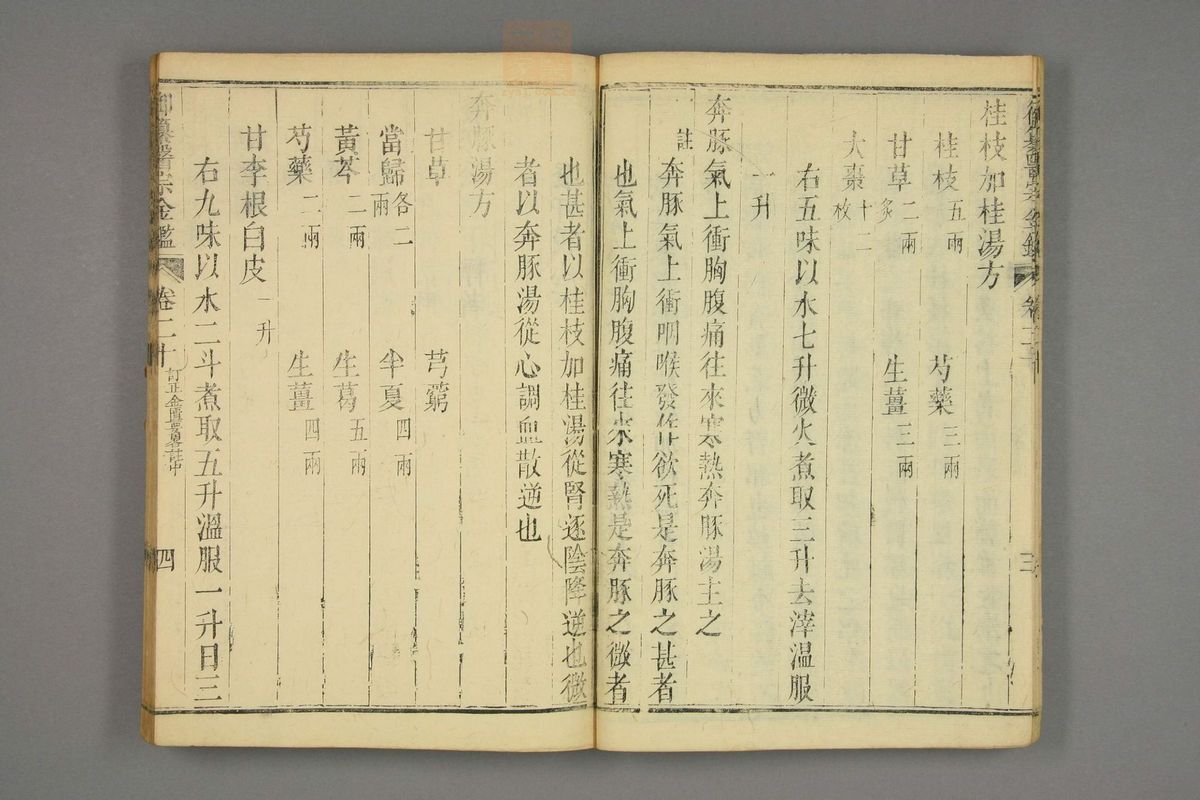 桂枝加桂湯方
桂枝五兩 芍藥三兩
甘草二兩炙 生薑三兩
大棗十二枚
右五味以水七升微火煮取三升去滓溫服
一升
奔豚氣上衝胸腹痛往來寒熱奔豚湯主之
註奔豚氣上衝咽喉發作欲死是奔豚之甚者
也氣上衝胸腹痛往來寒熱是奔豚之微者
也甚者以桂枝加桂湯從腎逐陰降逆也微
者以奔豚湯從心調血散逆也
奔豚湯方
甘草 芎藭
當歸各二兩 半夏四兩
黃芩二兩 生葛五兩
芍藥二兩 生薑四兩
甘李根白皮一升
右九味以水二斗煮取五升溫服一升日三
御纂醫宗金鑑 卷二十 訂正金匱要略註中 四